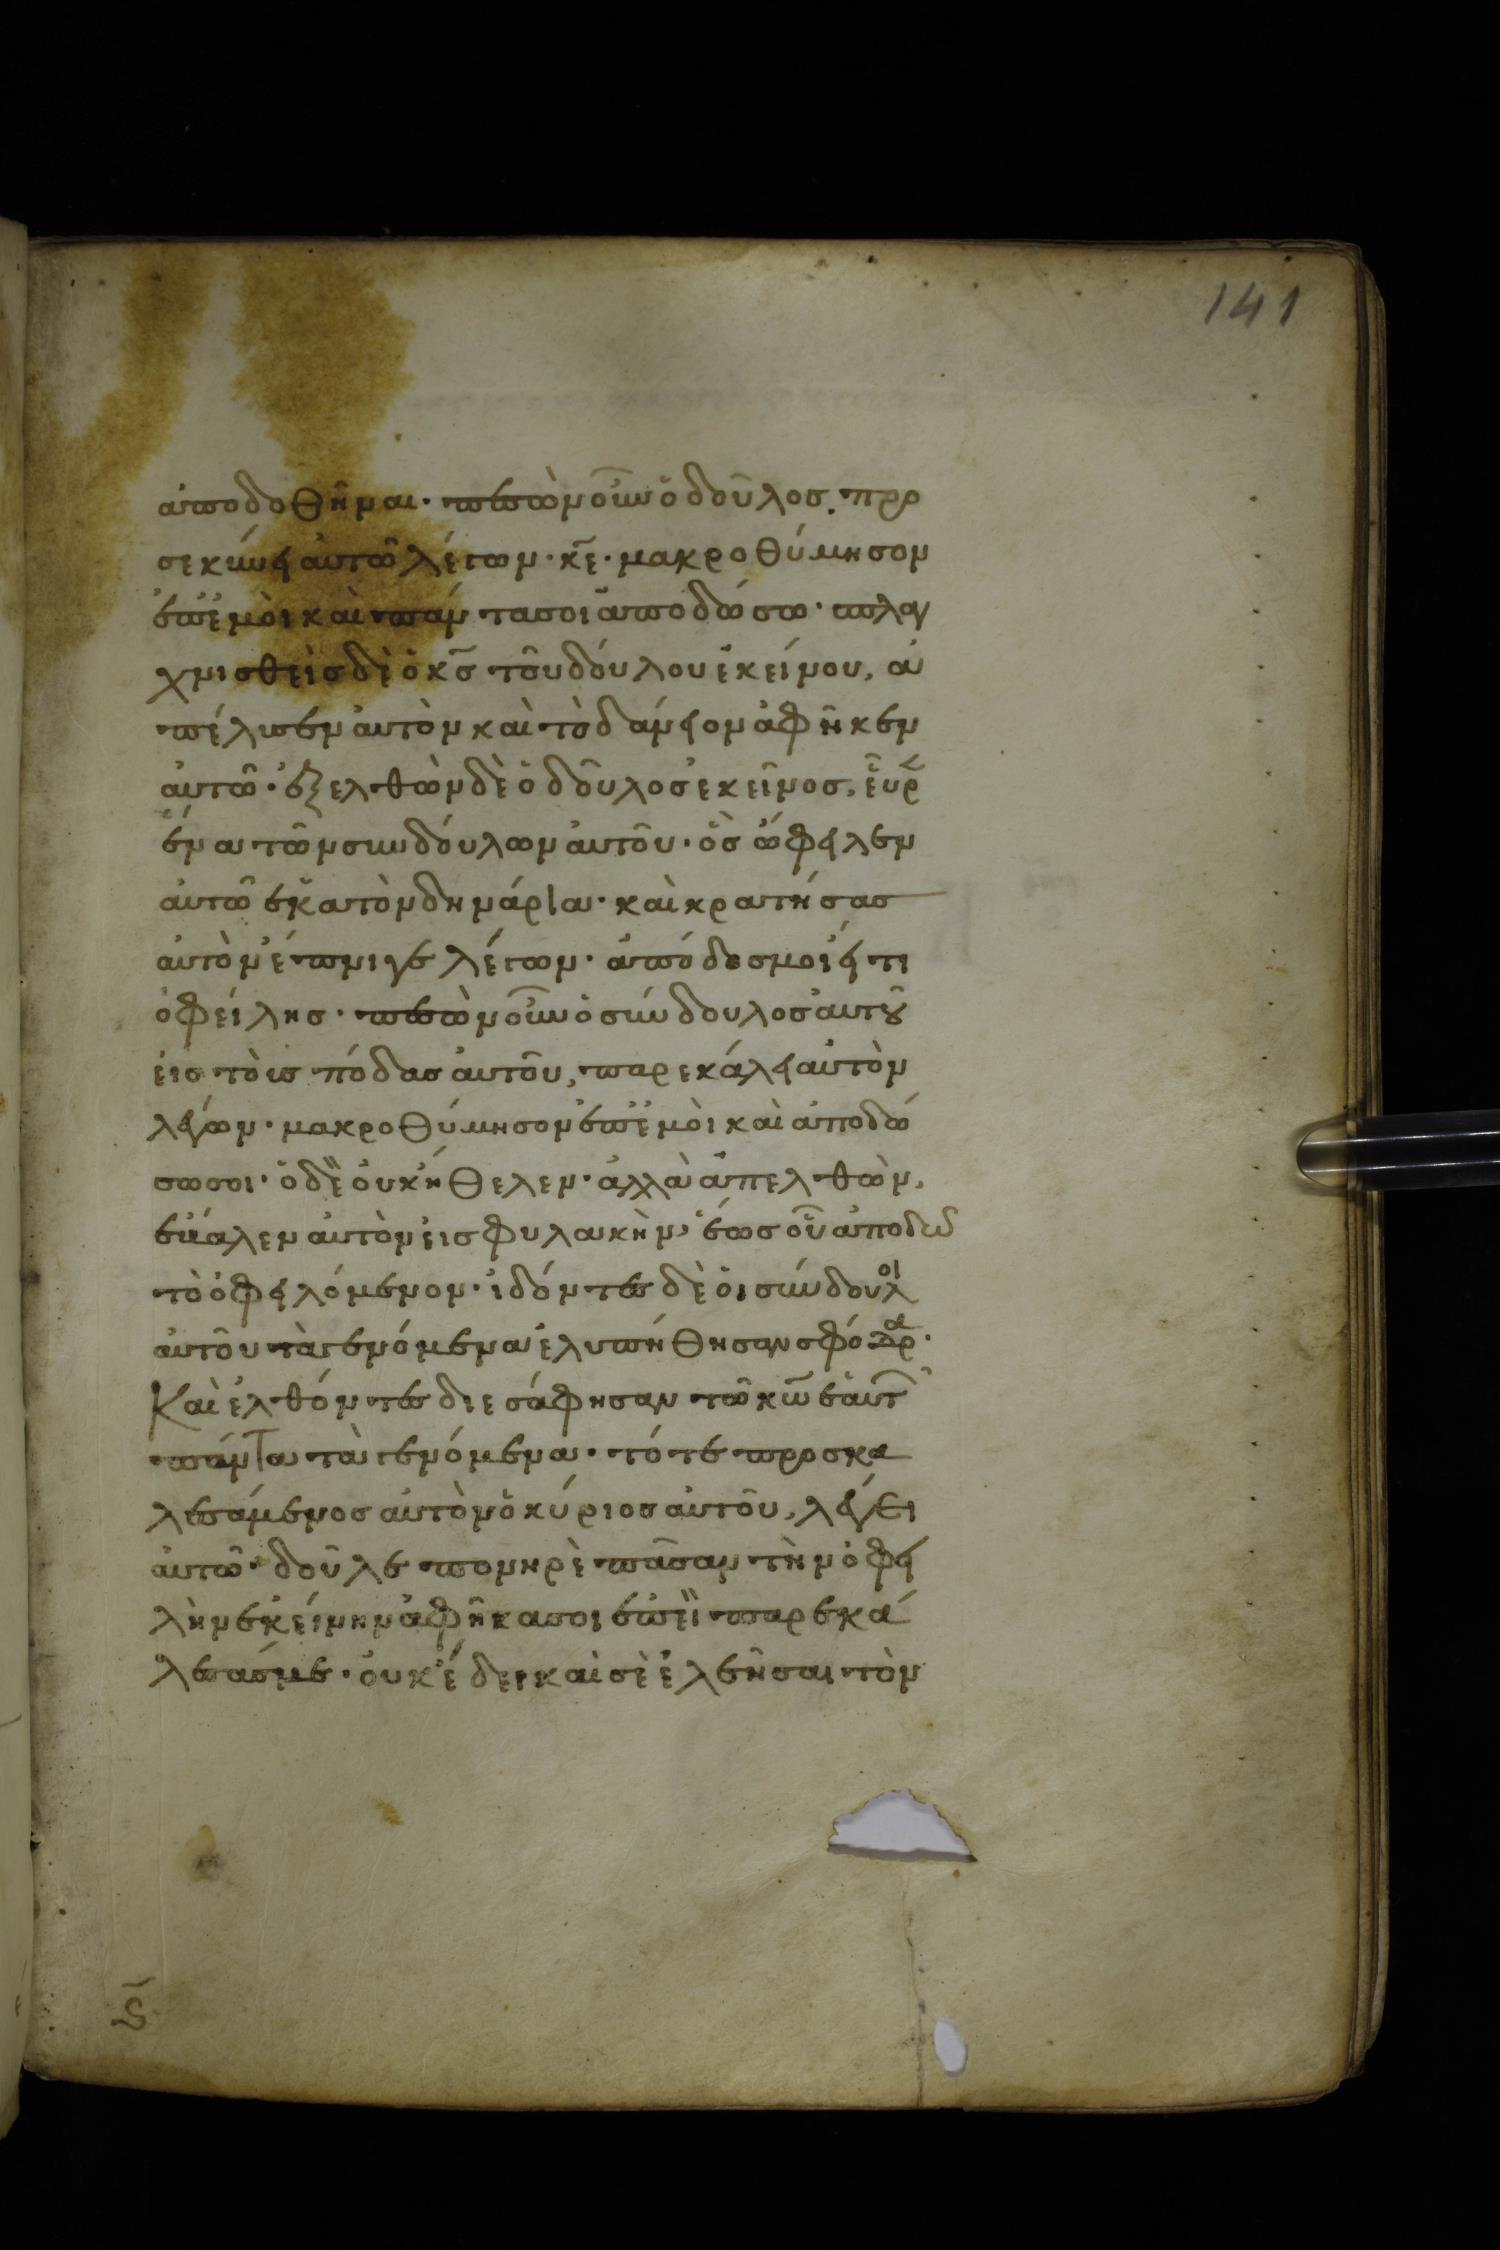 141
ἀποδοθῆναι· πεσὼν οὖν ὁ δοῦλοσ. προ
σεκύνει αὐτῶ λέγων· κ̅ε̅· μακροθύμησον
ἐπ' ἐμὸι καὶ πάντα σοι ἀποδώσω· σπλαγ
χνισθεὶσ δὲ ὁ κ̅σ̅ τοῦ δούλου ἐκείνου, ἀ
πέλυσεν ἀυτὸν καὶ τὸ δάνειον ἀφῆκεν
ἀυτῶ· ἐξελθὼν δὲ ὁ δοῦλοσ ἐκεῖνοσ, εὗρε
ἕνα τῶν συνδούλων ἀυτοῦ· ὃσ ὤφειλεν
ἀυτῶ ἑκατὸν δηνάρια· καὶ κρατήσασ
ἀυτὸν ἔπνιγε λέγων· ἀπόδοσ μοι εἴ τι
ὀφείλησ· πεσὼν οὖν ὁ σύνδουλοσ ἀυτοῦ
εἰσ τοὺσ πόδασ ἀυτοῦ, παρεκάλει αὐτὸν
λέγων· μακροθύμησον ἐπ' ἐμὸι καὶ ἀποδώ
σω σοι· ὁ δὲ οὐκ ἤθελεν· ἀλλὰ ἀπελθὼν,
ἔβαλεν ἀυτὸν εἰσ φυλακὴν, ἕωσ οὗ ἀποδῶ
τὸ ὀφειλόμενον· ἰδόντεσ δὲ ὁι σύνδουλοι
ἀυτοῦ τὰ γενόμενα ἐλυπήθησαν σφόδρα·
Καὶ ἐλθόντεσ διεσάφησαν τῶ κ̅ω̅ ἑαυτ
πάντα τὰ γενόμενα· τότε προσκα
λεσάμενοσ ἀυτὸν ὁ κύριοσ ἀυτοῦ, λέγει
ἀυτῶ· δοῦλε πονηρὲ πᾶσαν τὴν ὀφει
λὴν ἐκείνην ἀφῆκα σοι ἐπεὶ παρεκά
λεσάσ με· οὐκ ἔδει καὶ σὲ ἐλεῆσαι τὸν
ς̅